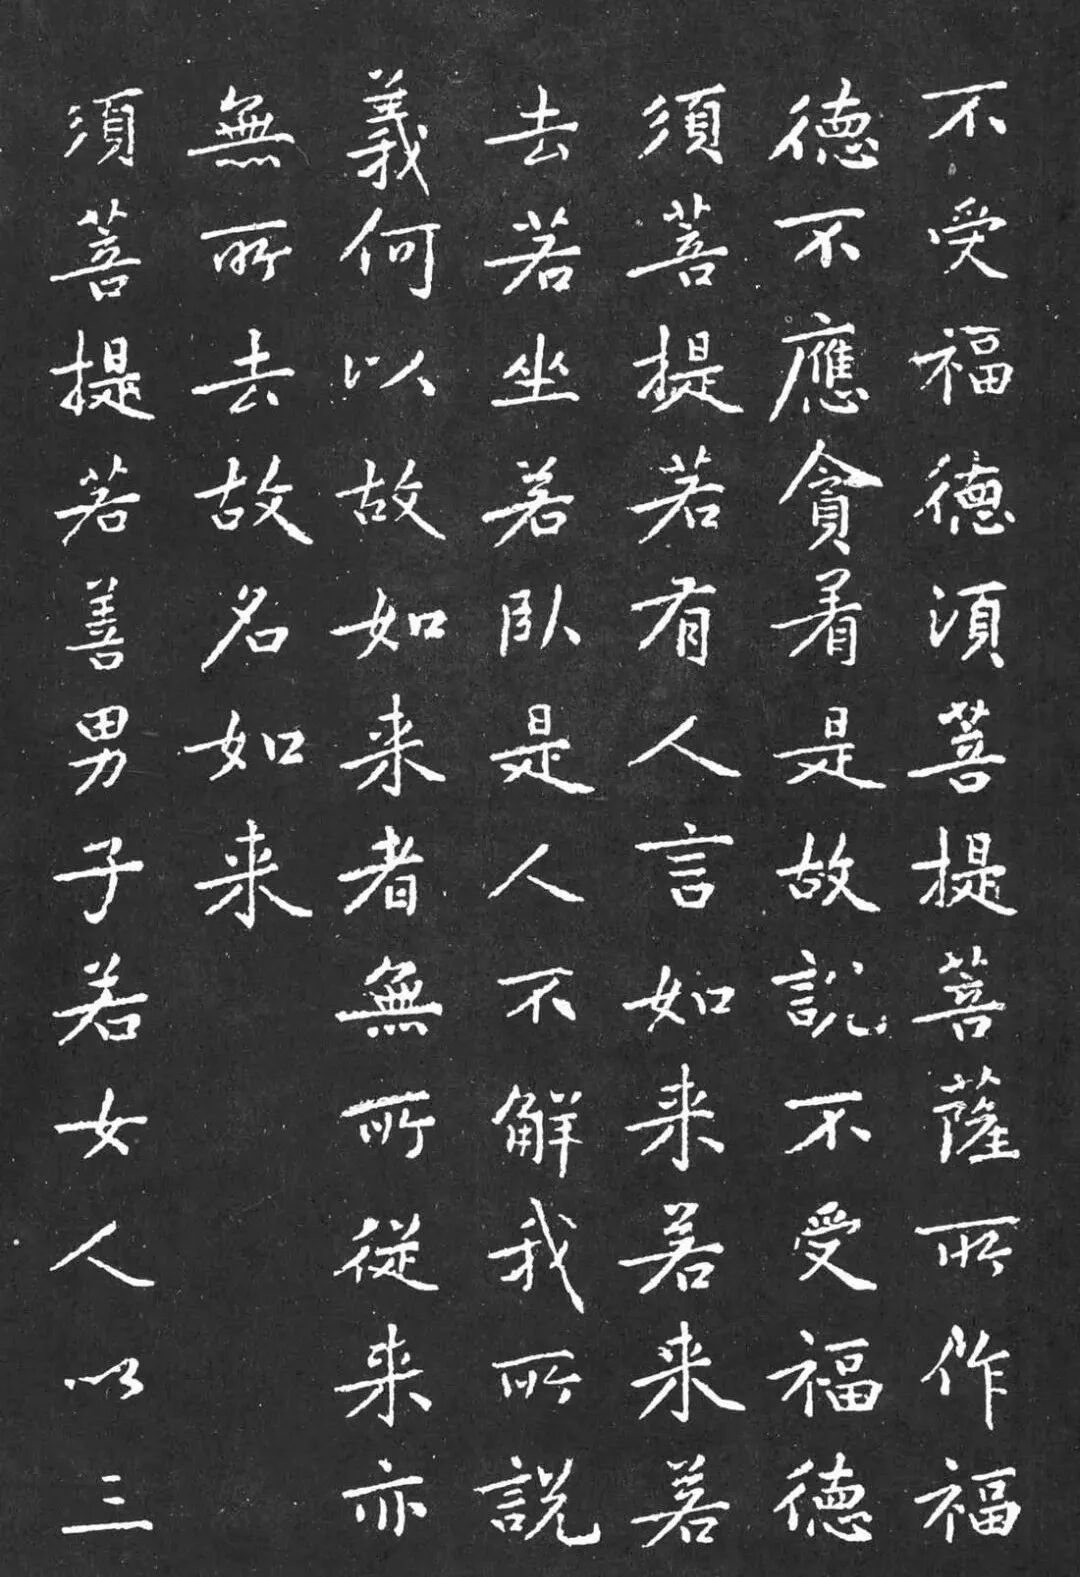 不受福德須菩提菩薩所作福
德不應貪着是故說不受福德
須菩提若有人言如来若来若
去若坐若臥是人不解我所說
義何以故如来者無所從来亦
無所去故名如来
須菩提若善男子若女人以三